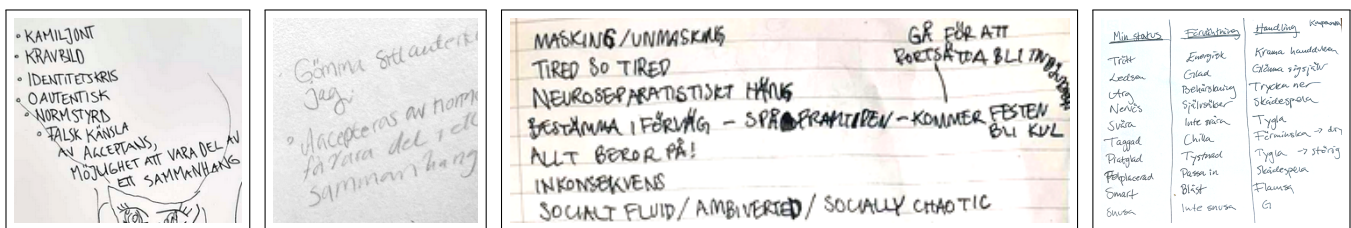 • KAMILJONT
• KRAVBILD
• IDENTITETSKRIS
• OAUTENTISK
• NORMSTYRD
• FALSK KÄNSLA
AV ACCEPTANS,
MÖJLIGHET ATT VARA DEL AV
ETT SAMMANHANG
• Gömma sitt autentiska
Jag.
• Accepteras av norme
för att vara del i ett
sammanhang
MASKING/UNMASKING
TIRED SO TIRED
NEUROSEPARATISTISKT HÄNG
BESTÄMMA I FÖRVÄG – SPÅ FRAMTIDEN – KOMMER FESTEN
BLI KUL
GÅ FÖR ATT
FORTSÄTTA BLI INBJUDEN
ALLT BEROR PÅ!
INKONSEKVENS
SOCIALT FLUID/AMBIVERTED/SOCIALLY CHAOTIC
Min status Förväntning Handling
Trött Energisk Krama handduken
Ledsen Glad Glömma sig själv
Arg Behärskning Trycka ner
Nervös Självsäker Skådespela
Svära Inte svära Tygla
Taggad Chilla Förminska →
Pratglad Tystnad Tygla → störig
Felplacerad Passa in Skådespela
Smart Blåst Flamsa
Snusa Inte snusa G